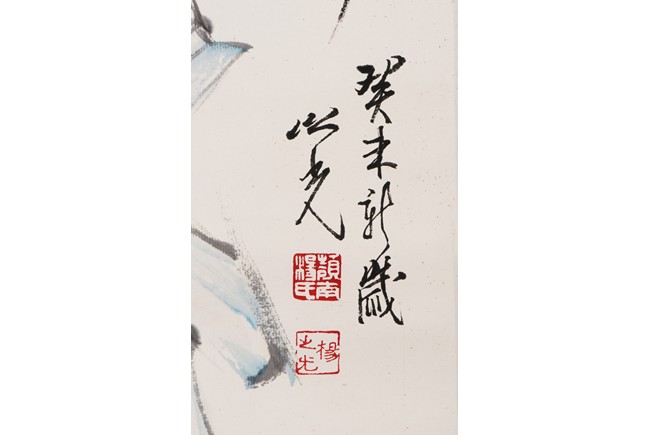 癸未新歲
之光
嶺南楊氏
楊之光